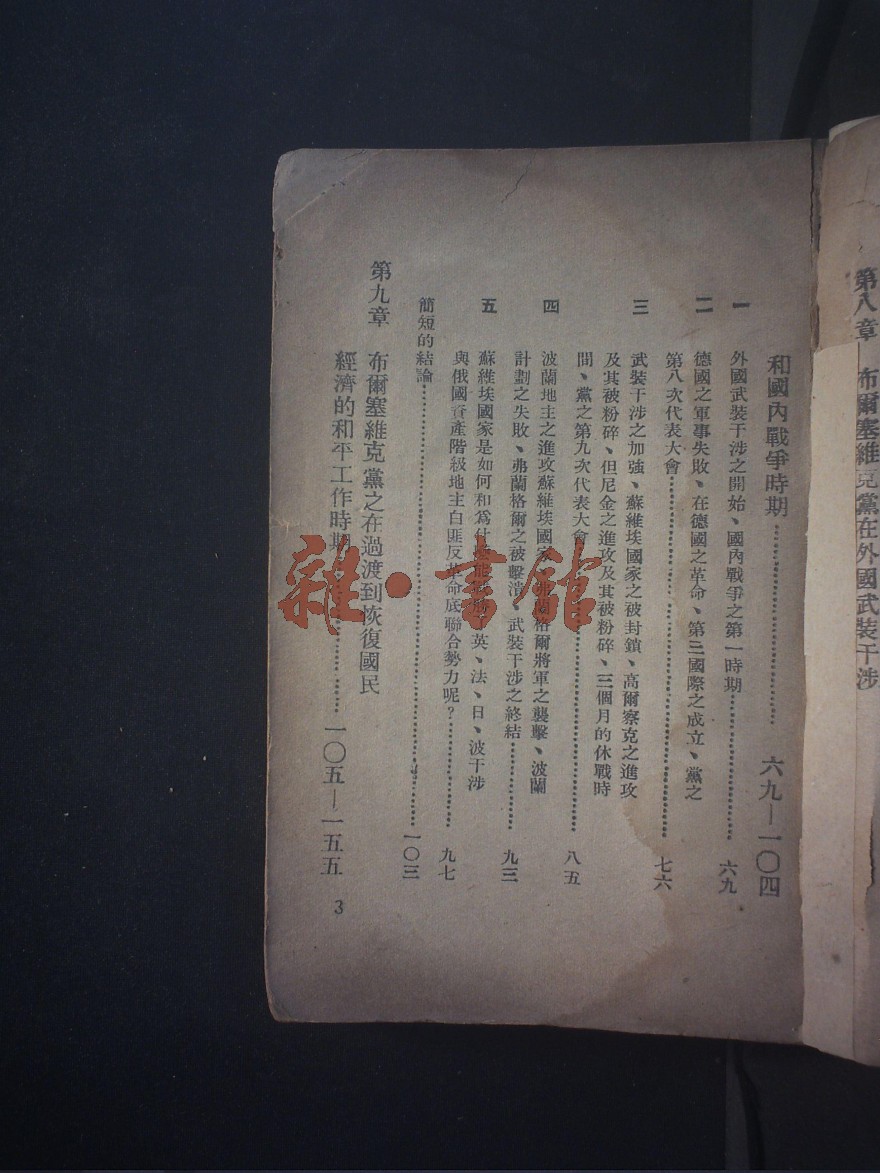 第八章 布爾塞維克黨在外國武裝干涉
和國內戰爭時期…………六九—一〇四
一 外國武裝干涉之開始、國內戰爭之第一時期…………六九
二 德國之軍事失敗、在德國之革命、第三國際之成立、黨之
第八次代表大會…………七六
三 武裝干涉之加強、蘇維埃國家之被封鎖、高爾察克之進攻
及其被粉碎、但尼金之進攻及其被粉碎、三個月的休戰時
間、黨之第九次代表大會…………八五
四 波蘭地主之進攻蘇維埃國家、弗蘭格爾將軍之襲擊、波蘭
計劃之失敗、弗蘭格爾之被擊潰、武裝干涉之終結…………九三
五 蘇維埃國家是如何和爲什 英、法、日、波干涉
與俄國資產階級地主白匪反革命底聯合勢力呢？…………九七
簡短的結論…………一〇三
第九章 布爾塞維克黨之在過渡到恢復國民
經濟的和平工作時期…………一〇五—一五五
3
雜·書館